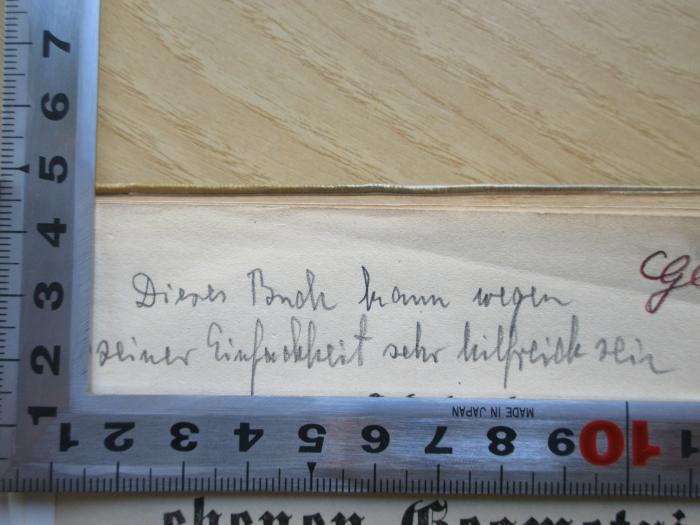 Dieses Buch kann wegen
seiner Einfachheit sehr hilfreich sein
Ge
7
6
5
4
3
2
1
MADE IN JAPAN
1 2 3 4 5 6 7 8 9 10 1
chenen Geometri